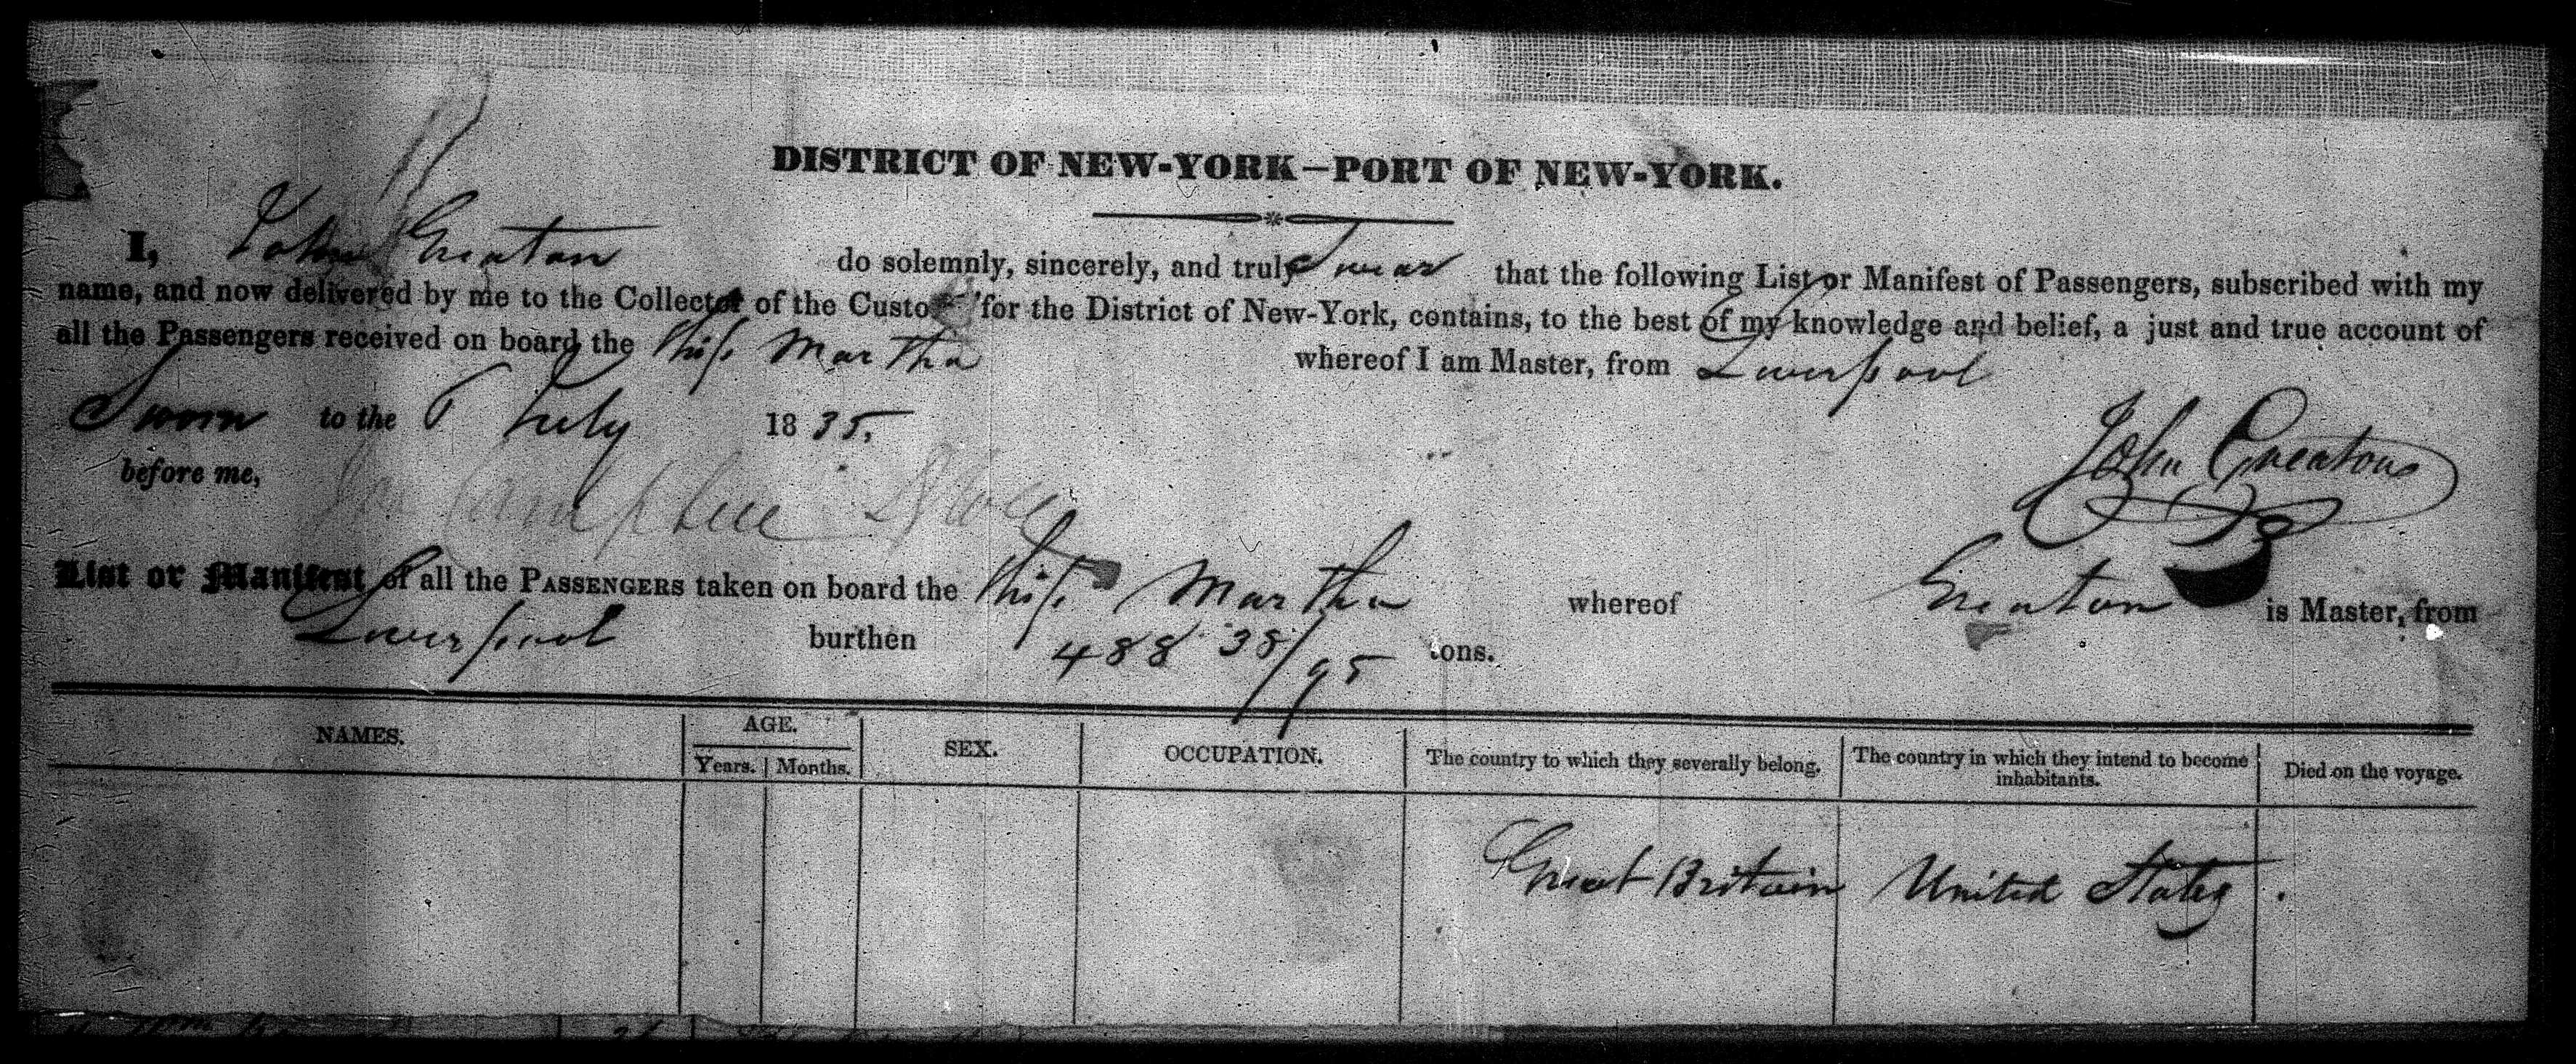 DISTRICT OF NEW-YORK—PORT OF NEW-YORK.
I, John Greaton do solemnly, sincerely, and truly Swear that the following List or Manifest of Passengers, subscribed with my
name, and now delivered by me to the Collector of the Custo for the District of New-York, contains, to the best of my knowledge and belief, a just and true account of
all the Passengers received on board the Ship Martha whereof I am Master, from Liverpool
Sworn to the 6 July 1835,
before me,
John Greaton
List or Manifest of all the PASSENGERS taken on board the Ship Martha whereof Greaton is Master, from
Liverpool burthen 488 38/95 tons.
NAMES. AGE. SEX. OCCUPATION. The country to which they severally belong. The country in which they intend to become inhabitants. Died on the voyage.
Years. Months.
Great Britain United States .